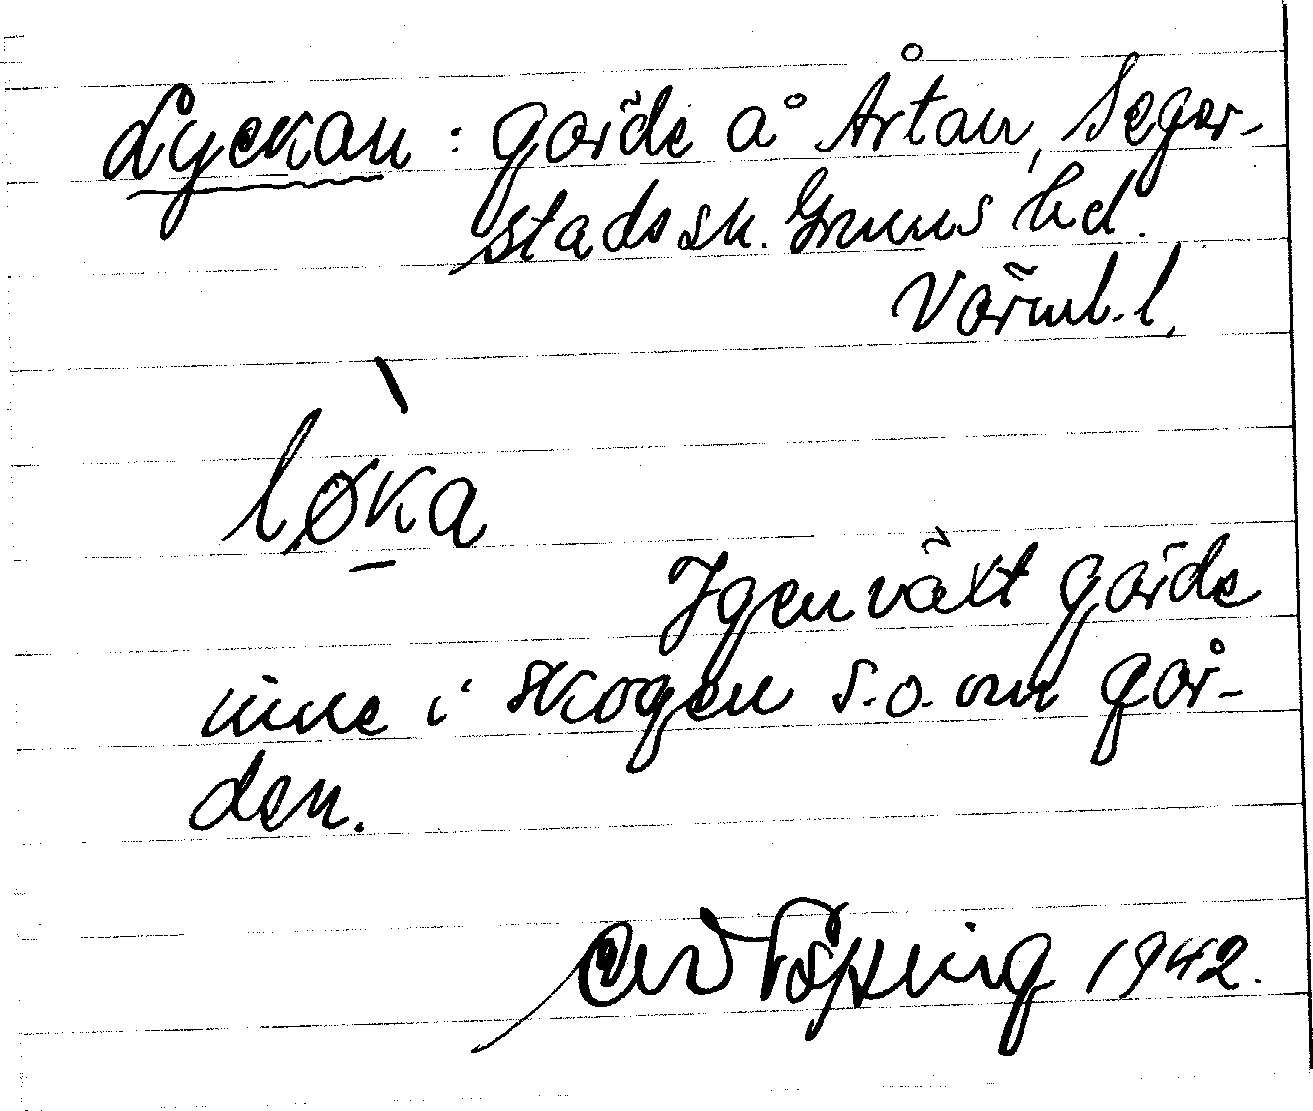 Lyckan : gärde å Årtan, Seger-
stads sk. Grums hd.
Värml. l.
lø̀ka
Igenväxt gärde
inne i skogen s.o. om går-
den.
1942.